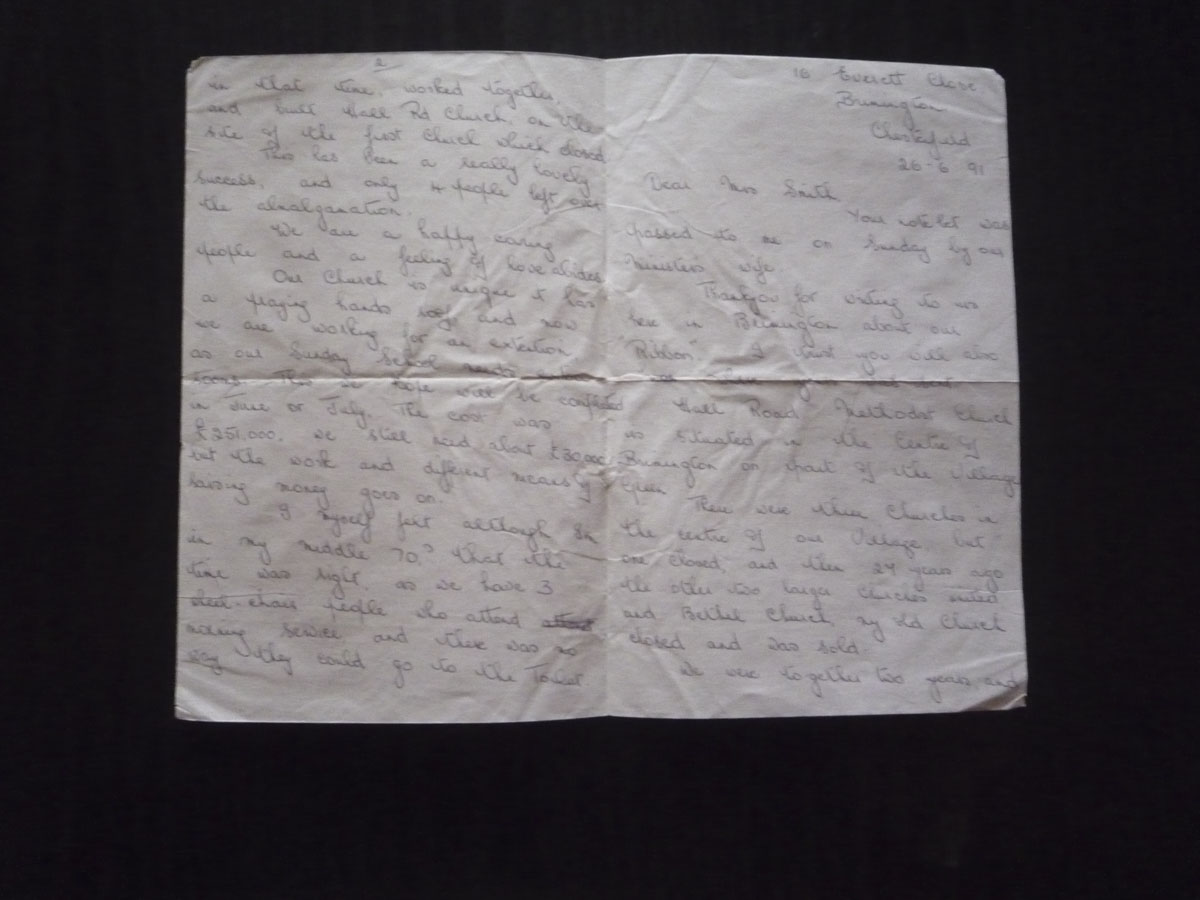 18 Everett Close
Brimington
Chesterfield
26-6 91
Dear Mrs Smith
Your notelet was
passed to me on Sunday by our
Ministers wife.
Thankyou for writing to us
here in Brimington about our
"Ribbon". I trust you will also
Hall Road Methodist Church
is situated in the Centre of
Brimington on part of the Village
Green
There were three Churches in
the centre of our Village, but
one closed, and then 24 years ago
the other two larger Churches united
and Bethel Church, my old Church
closed and was sold.
We were together two years and
2
in that time, worked together,
and built Hall Rd Church, on the
site of the first Church which closed
This has been a really lovely
success, and only 4 people left over
the amalgamation.
We are a happy caring
people and a feeling of love abides
Our Church is unique it has
a praying hands roof and now
we are working for an extention
as our Sunday School needs
rooms. This we hope will be completed
in June or July. The cost was
£251,000. we still need about £30,000
but the work and different means of
raising money goes on.
I myself felt although Im
in my middle 70s that the
time was right, as we have 3
wheel-chair people who attend attend
morning service and there was no
way they could go to the Toilet